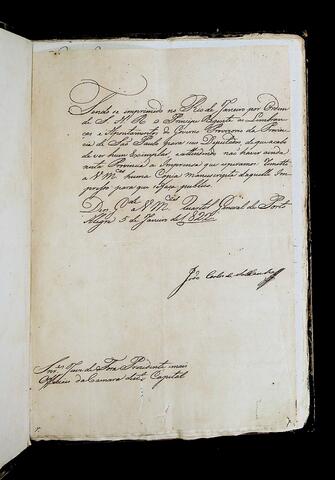 Tendo se imprimido no Rio de Janeiro por Ordem
de S. A. R. o Principe Regente as Lembran-
ças e Apontamentos do Governo Provizorio da Provin-
cia de São Paulo para seus Deputados de que acabo
de ver hum Exemplar, e attendendo não haver ainda
nesta Provincia a Imprensa que esperamos: Remetto
a V. Mces huma Copia manuscripta daquelle Im-
presso para que o fação publico.
Deos Gde a V. Mces Quartel General de Porto
Alegre 5 de Janeiro de 1822
João Carlos de Saldanha
Snres Juiz de Fora Prezidente, mais
Officiaes da Camara desta Capital